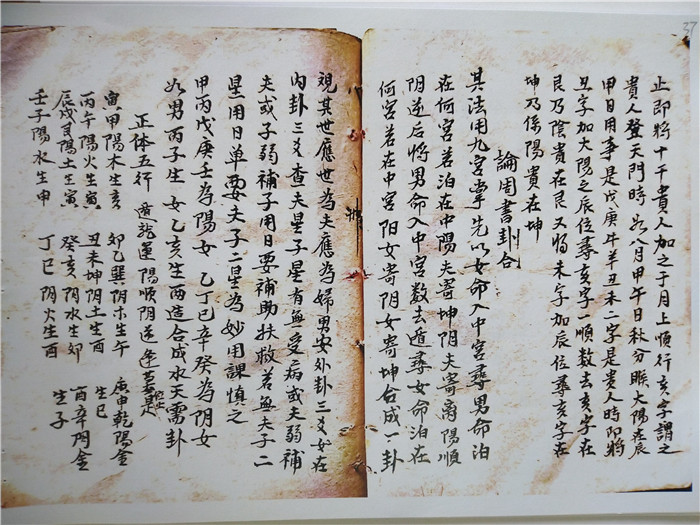 37
止即将十干貴人加之于月上順行亥字謂之
貴人登天門時如八月甲午日秋分賬大陽在辰
甲日用事是戊庚牛羊丑未二字是貴人時即将
丑字加大陽之辰位尋亥字一順数去亥字在
艮乃陰貴在艮又将未字加辰位尋亥字在
坤乃係陽貴在坤
論周書卦合
其法用九宮掌先以女命入中宮尋男命泊
在何宮若泊在中陽夫寄坤阴夫寄离陽順
阴逆后将男命入中宮数去遁尋女命泊在
何宮若在中宮阳女寄阴女寄坤合成一卦
視其世應世為夫應為婦男安外卦三爻女在
内卦三爻查夫星子星有無受病或夫弱補
夫或子弱補子用日要補助扶救若無夫子二
星用日单要夫子二星為妙用課慎之
甲丙戊庚壬為陽女乙丁巳辛癸為阴女
如男丙子生女乙亥生两造合成水天需卦
正体五行遁龍運陽順阴逆是
寅甲陽木生亥 卯乙巽阴木生午 庚申乾陽金生巳
丙午陽火生寅 丑未坤阴土生酉 酉辛阴金生子
辰戌艮陽土生寅 癸亥阴水生卯
壬子陽水生申 丁巳阴火生酉